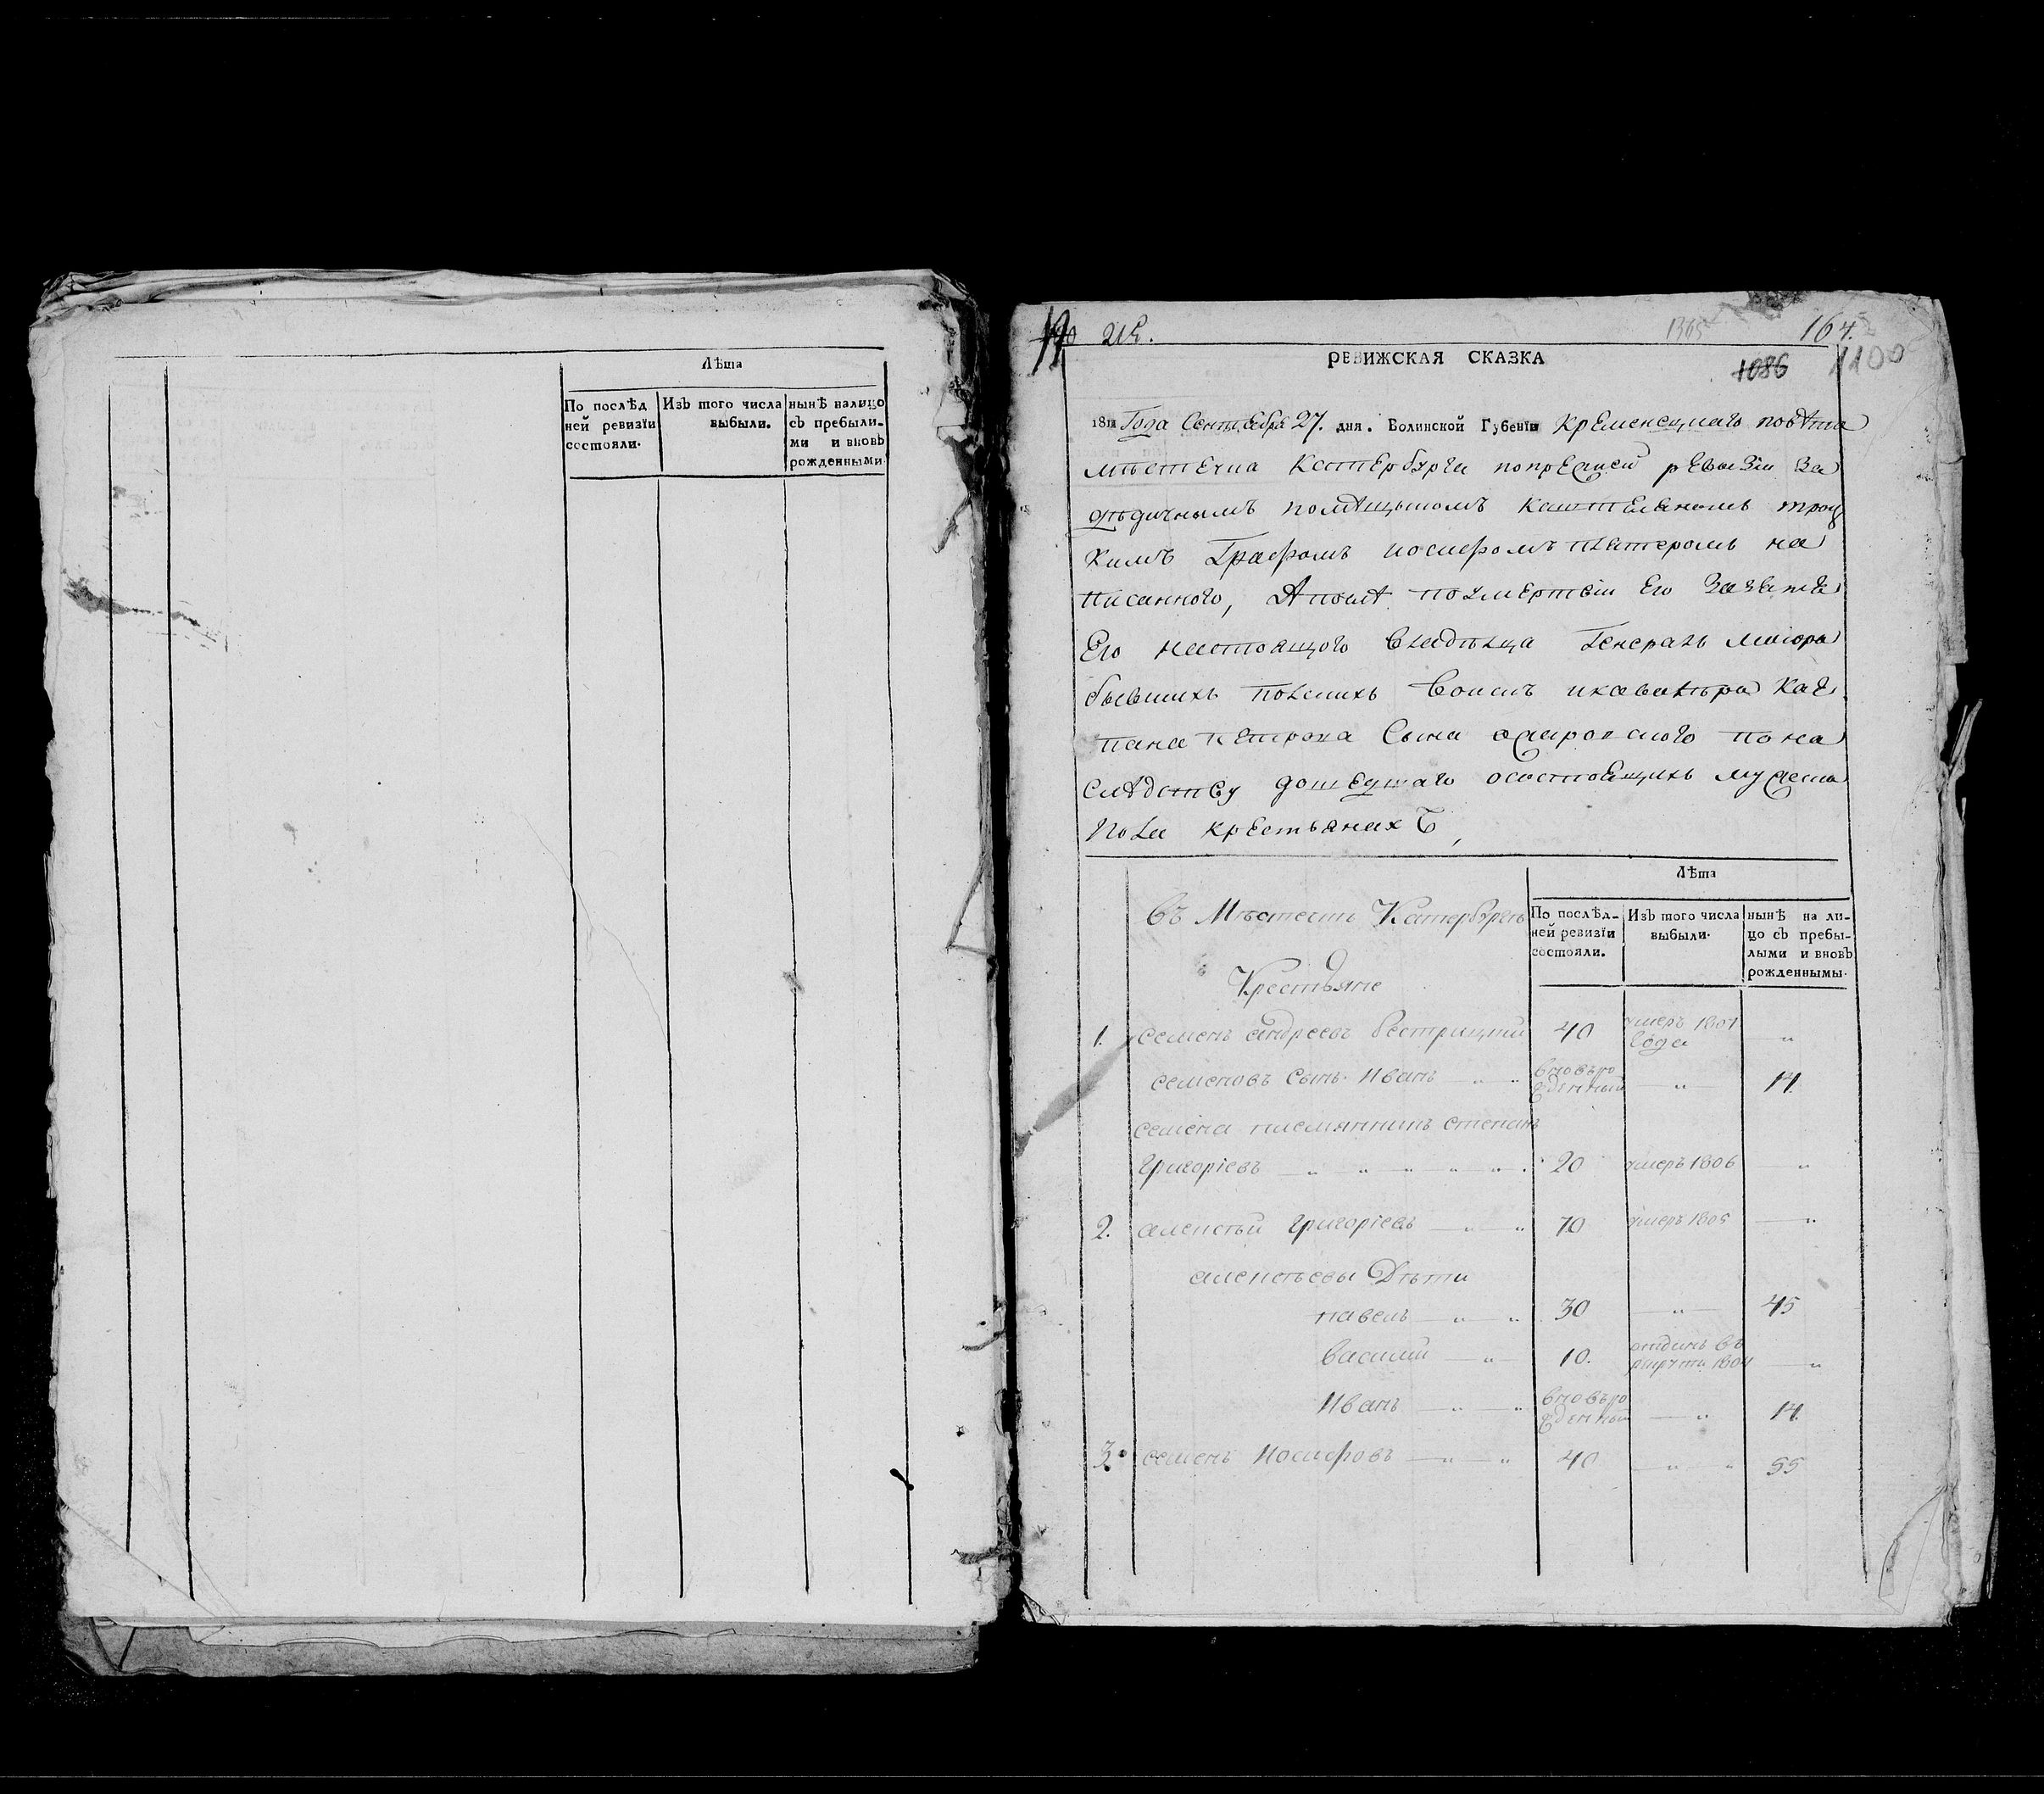 Лѣта
По послѣд
ней ревизїи
состояли.
Изъ того числа
выбыли.
нынѣ налицо
съ пребыли-
ми и вновь
рожденными
215.
1305
164.
РЕВИЖСКАЯ СКАЗКА
1086
1100
1811 Года Сентебра 27. дня. Волинской Губенїи Кременецкаго повѣта
мѣстечка Катербурга попрежней ревизїи за
дѣдичнымъ помѣщыкомъ каштеляномъ троц
кимъ Графомъ иосифомъ платеромъ на
писанного, Апослѣ посмертвїи Его
Его настоящого владѣльца Генералъ маиора
бывшихъ полскихъ воискъ икавалѣра Кае
тана петрова Сына по на
слѣдству дошедшаго осостоящихъ мужеска
пола крестьянахъ,
Лѣта
Въ Мѣстечкѣ Катербургѣ
По послѣд-
ней ревизїи
состояли.
Изъ того числа
выбыли.
нынѣ на ли-
цо съ пребы-
лыми и вновь
рожденнымы.
Крестьяне
1. семенъ андреевъ бестрицкий 40 умеръ 1807 года „
семеновъ Сынъ Иванъ „ „ вновьро жденный „ 14
семена племянникъ степанъ
григорїевъ „ „ „ „ „ 20 умеръ 1806 „
2. алексѣй григорїевъ „ „ 70 умеръ 1805 „
алексѣевы Дѣти
павелъ „ „ 30 „ 45
василий „ 10. отданъ въ рекруты 1804 „
Иванъ „ „ вновьро жденный „ 14
3. семенъ иосифовъ „ „ 40 „ „ 55